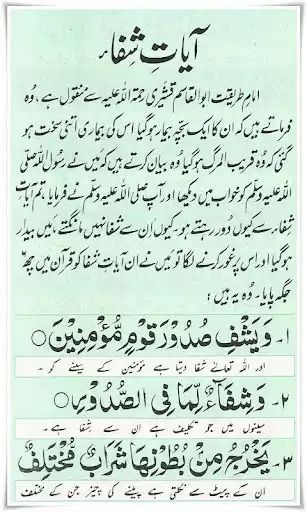 آیاتِ شفاء
امام طریقت ابوالقاسم قشیری رحمۃ اللہ علیہ سے منقول ہے، وہ
فرماتے ہیں کہ ان کا ایک بچہ بیمار ہوگیا اس کی بیماری اتنی سخت ہو
گئی کہ وہ قریب المرگ ہوگیا وہ بیان کرتے ہیں کہ میں نے رسول اللہ صلی
اللہ علیہ وسلم کو خواب میں دیکھا اور آپ صلی اللہ علیہ وسلم نے فرمایا، تم آیاتِ
شفاء سے کیوں دور رہتے ہو۔ کیوں ان سے شفا نہیں مانگتے، میں بیدار
ہوگیا اور اس پر غور کرنے لگا تو میں نے ان آیاتِ شفا کو قرآن میں چھ
جگہ پایا۔ وہ یہ ہیں:
۱- وَيَشْفِ صُدُوْرَ قَوْمٍ مُّؤْمِنِيْنَ ○
اور اللہ تعالٰے شفا دیتا ہے مؤمنین کے سینے کو ۔
۲- وَشِفَآءٌ لِّمَا فِي الصُّدُوْرِ ○
سینوں میں جو تکلیف ہے ان سے شفا ہے۔
۳- يَخْرُجُ مِنْۢ بُطُوْنِهَا شَرَابٌ مُّخْتَلِفٌ
ان کے پیٹ سے نکلتی ہے پینے کی چیز جن کے مختلف